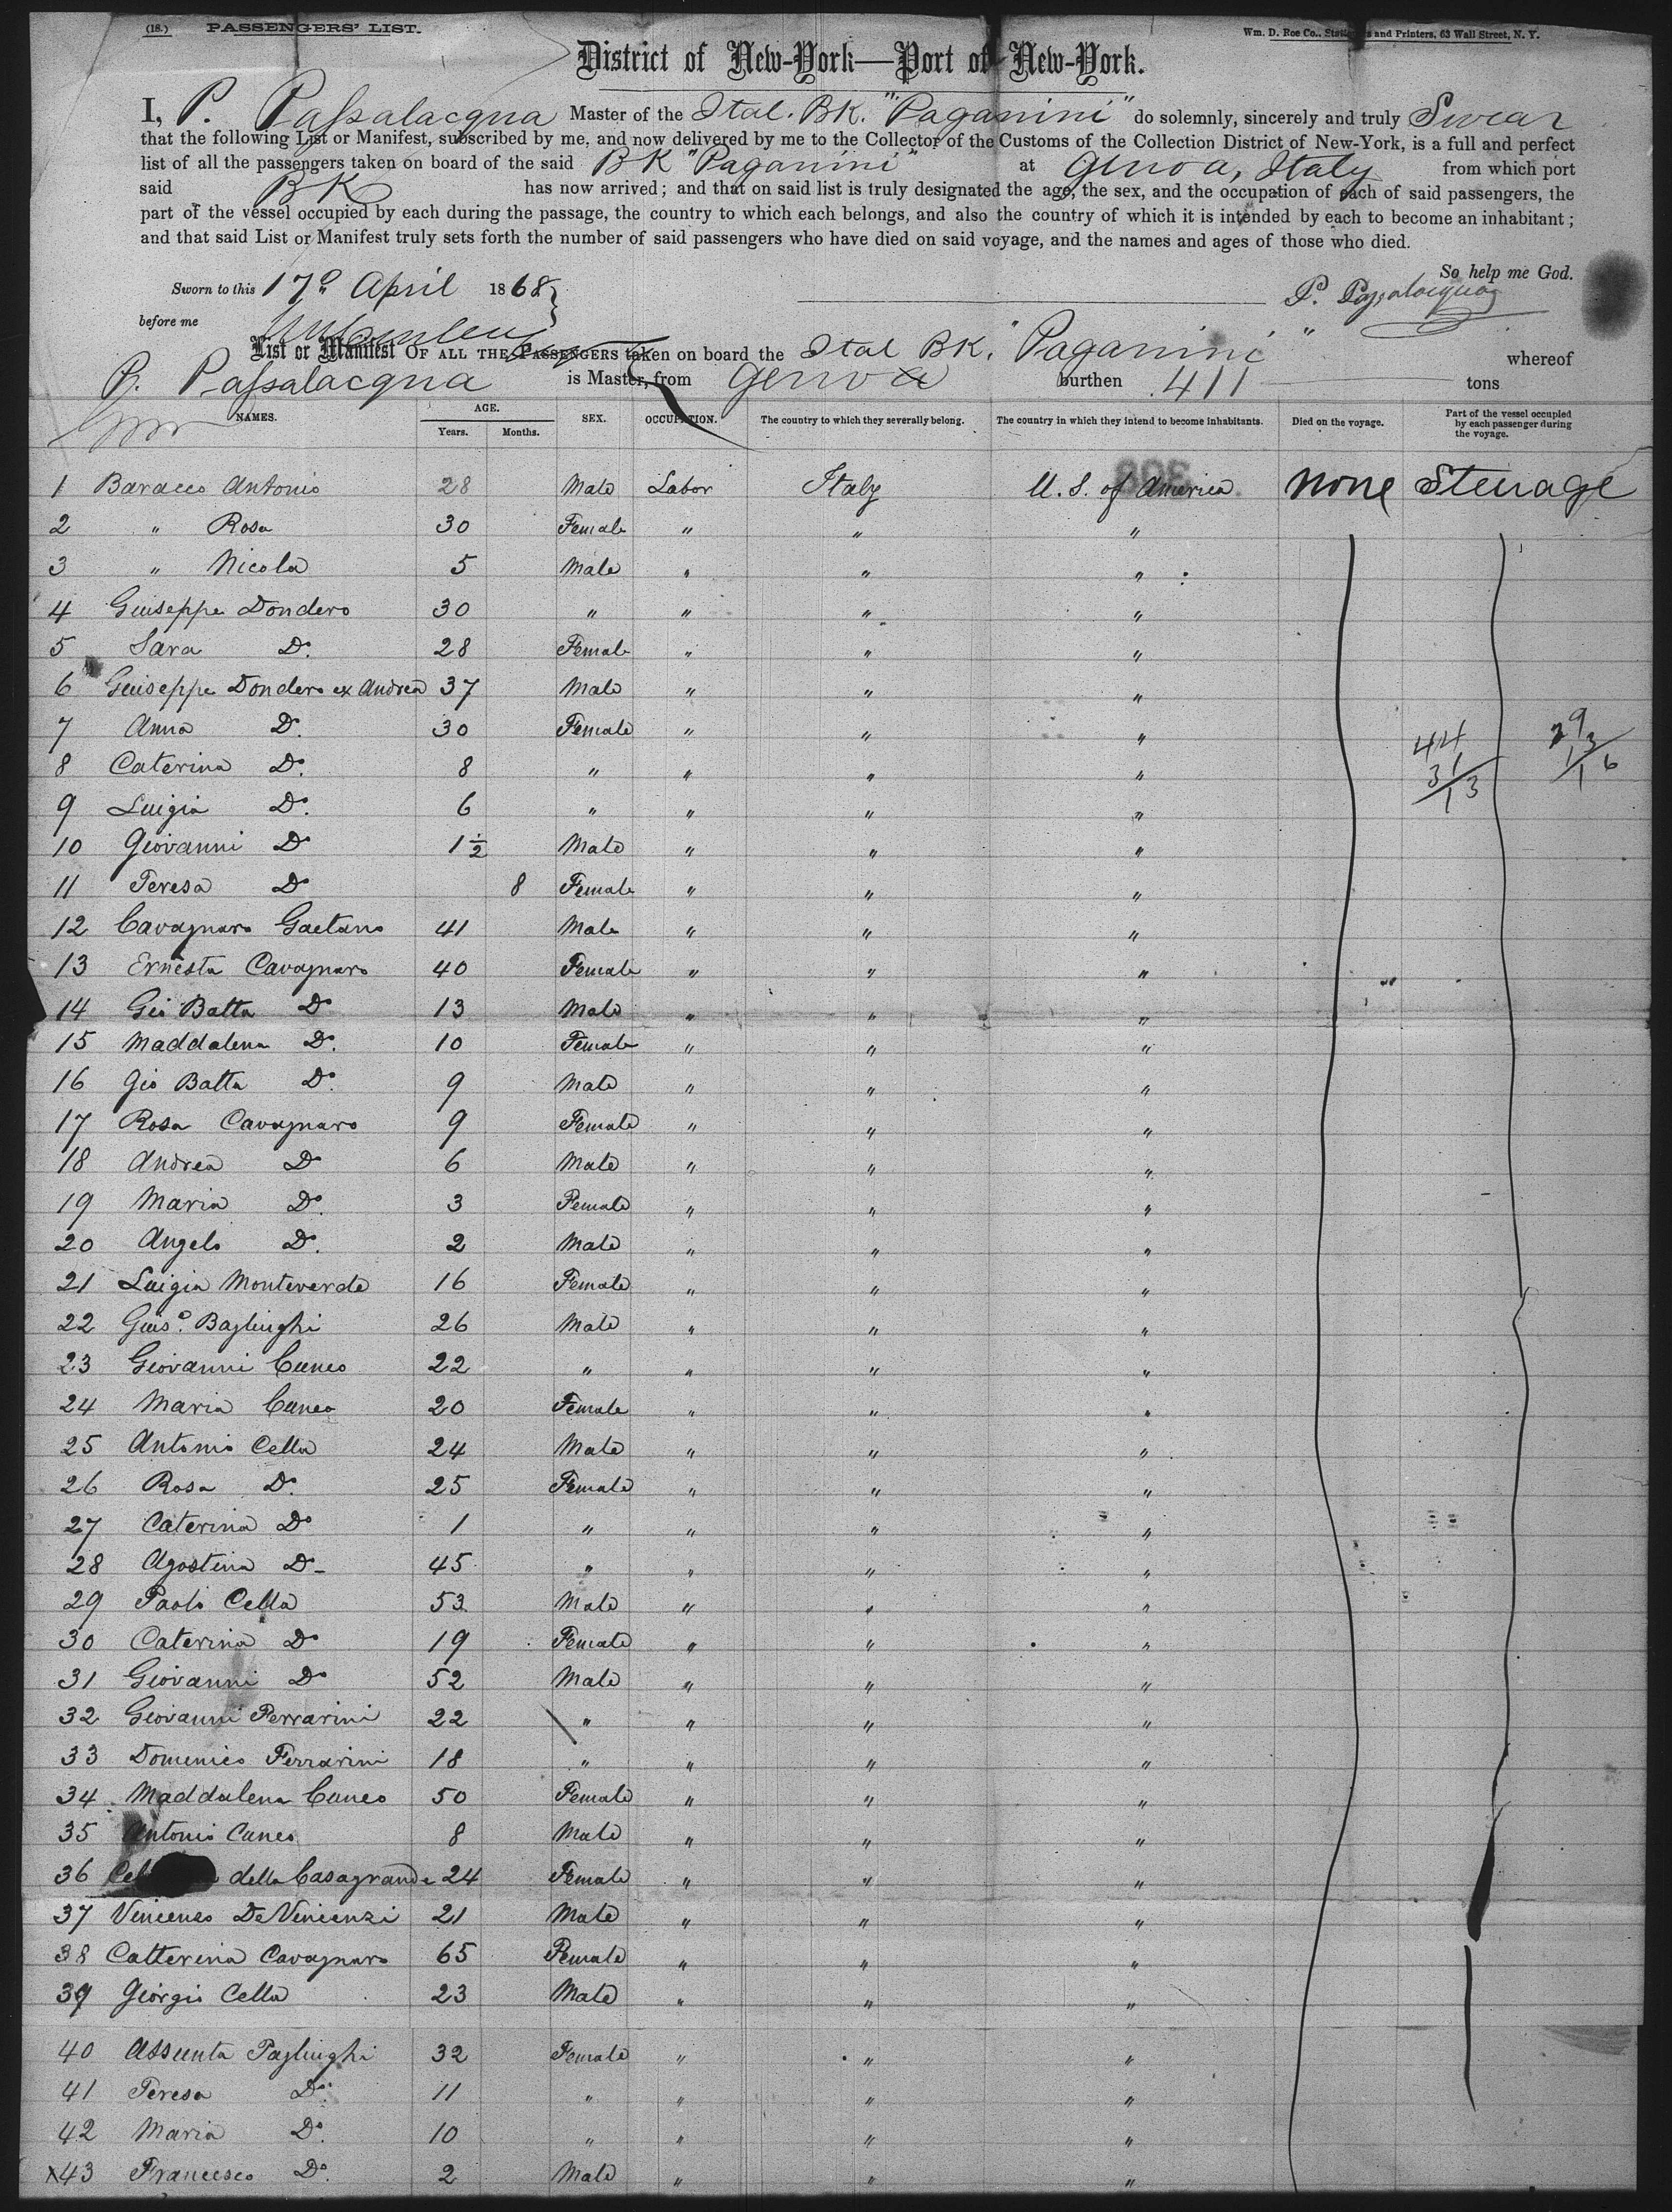 (18.) PASSENGERS' LIST. Wm. D. Roe Co., Stationers and Printers, 63 Wall Street, N. Y.
District of New-York—Port of New-York.
I, P. Passalacqua Master of the Ital. BK. "Paganini" do solemnly, sincerely and truly Swear
that the following List or Manifest, subscribed by me, and now delivered by me to the Collector of the Customs of the Collection District of New-York, is a full and perfect
list of all the passengers taken on board of the said BK "Paganini" at Genoa, Italy from which port
said BK has now arrived; and that on said list is truly designated the age, the sex, and the occupation of each of said passengers, the
part of the vessel occupied by each during the passage, the country to which each belongs, and also the country of which it is intended by each to become an inhabitant;
and that said List or Manifest truly sets forth the number of said passengers who have died on said voyage, and the names and ages of those who died.
So help me God.
Sworn to this 17th April 1868 P. Passalacqua
before me
List or Manifest OF ALL THE PASSENGERS taken on board the Ital BK. "Paganini" whereof
P. Passalacqua is Master, from Genoa burthen 411 tons
NAMES. AGE. Years. Months. SEX. OCCUPATION. The country to which they severally belong. The country in which they intend to become inhabitants. Died on the voyage. Part of the vessel occupied by each passenger during the voyage.
1 Baracco Antonio 28 Male Labor Italy U. S. of America None Steerage
2 " Rosa 30 Female " " "
3 " Nicola 5 Male " " "
4 Guiseppe Dondero 30 " " " "
5 Sara Do. 28 Female " " "
6 Guiseppe Dondero ex Andrea 37 Male " " "
7 Anna Do. 30 Female " " "
8 Caterina Do. 8 " " " " 44 31/13 29 13/16
9 Luigia Do. 6 " " " "
10 Giovanni Do 1½ Male " " "
11 Teresa Do 8 Female " " "
12 Cavagnaro Gaetano 41 Male " " "
13 Ernesta Cavagnaro 40 Female " " "
14 Gio Batta Do 13 Male " " "
15 Maddalena Do. 10 Female " " "
16 Gio Batta Do. 9 Male " " "
17 Rosa Cavagnaro 9 Female " " "
18 Andrea Do 6 Male " " "
19 Maria Do. 3 Female " " "
20 Angelo Do. 2 Male " " "
21 Luigia Monteverde 16 Female " " "
22 Guise. Baglinghi 26 Male " " "
23 Giovanni Cuneo 22 " " " "
24 Maria Cuneo 20 Female " " "
25 Antonio Cella 24 Male " " "
26 Rosa Do. 25 Female " " "
27 Caterina Do 1 " " " "
28 Agostina Do 45 " " " "
29 Paolo Cella 53 Male " " "
30 Caterina Do 19 Female " " "
31 Giovanni Do 52 Male " " "
32 Giovanni Ferrarini 22 " " " "
33 Domenico Ferrarini 18 " " " "
34 Maddalena Cuneo 50 Female " " "
35 Antonio Cuneo 8 Male " " "
36 della Casagrande 24 Female " " "
37 Vincenzo De Vincenzi 21 Male " " "
38 Catterina Cavagnaro 65 Female " " "
39 Giorgio Cella 23 Male " " "
40 Assunta Paglinghi 32 Female " " "
41 Teresa Do. 11 " " " "
42 Maria Do. 10 " " " "
x43 Francesco Do. 2 Male " " "